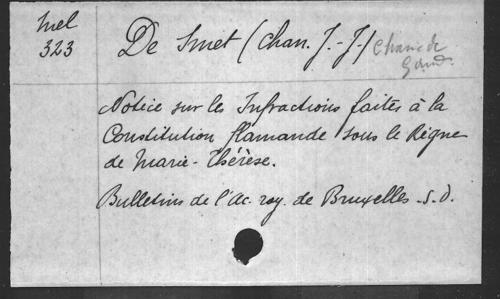 Mel
323
De Smet (Chan. J.-J.) Chan. de
Gand.
Notice sur les Infractions faites à la
Constitution flamande sous le Règne
de Marie-Thérèse.
Bulletins de l'Ac. roy. de Bruxelles. s.d.